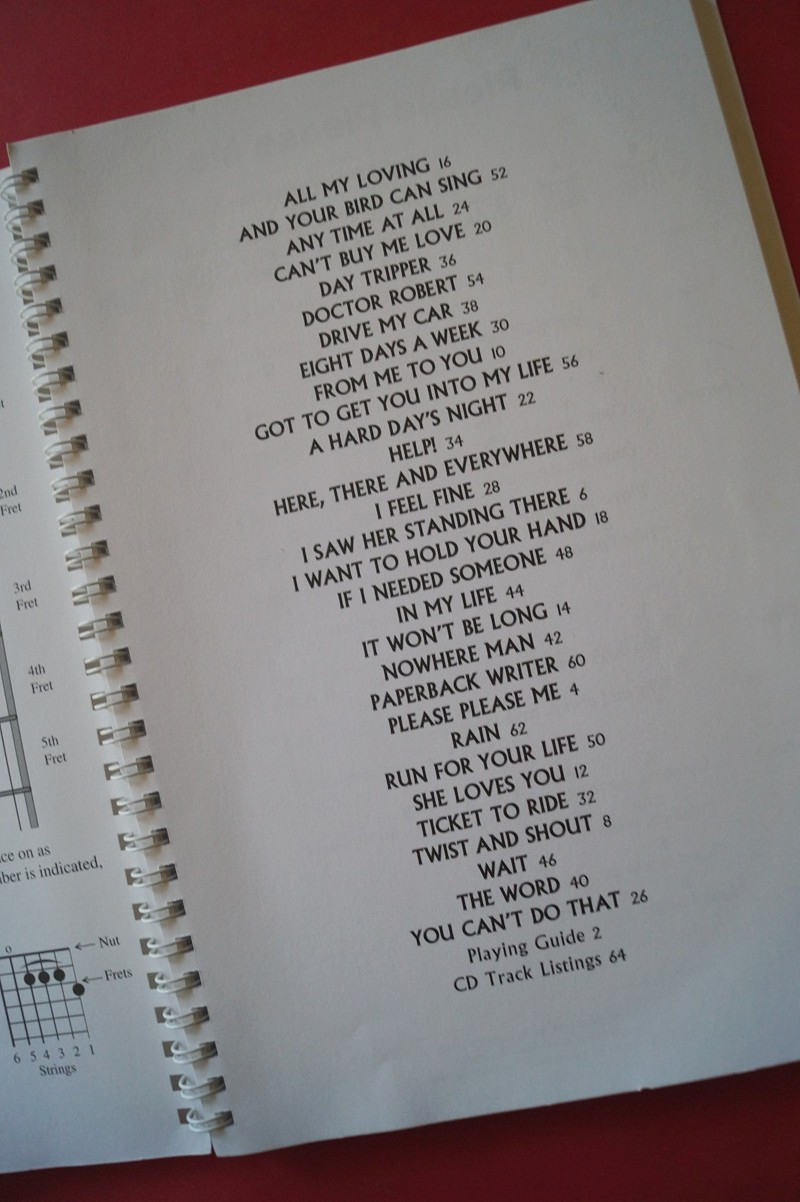 t
2nd
Fret
3rd
Fret
4th
Fret
5th
Fret
ce on as
ber is indicated,
o
Nut
Frets
6 5 4 3 2 1
Strings
ALL MY LOVING 16
AND YOUR BIRD CAN SING 52
ANY TIME AT ALL 24
CAN'T BUY ME LOVE 20
DAY TRIPPER 36
DOCTOR ROBERT 54
DRIVE MY CAR 38
EIGHT DAYS A WEEK 30
FROM ME TO YOU 10
GOT TO GET YOU INTO MY LIFE 56
A HARD DAY'S NIGHT 22
HELP! 34
HERE, THERE AND EVERYWHERE 58
I FEEL FINE 28
I SAW HER STANDING THERE 6
I WANT TO HOLD YOUR HAND 18
IF I NEEDED SOMEONE 48
IN MY LIFE 44
IT WON'T BE LONG 14
NOWHERE MAN 42
PAPERBACK WRITER 60
PLEASE PLEASE ME 4
RAIN 62
RUN FOR YOUR LIFE 50
SHE LOVES YOU 12
TICKET TO RIDE 32
TWIST AND SHOUT 8
WAIT 46
THE WORD 40
YOU CAN'T DO THAT 26
Playing Guide 2
CD Track Listings 64